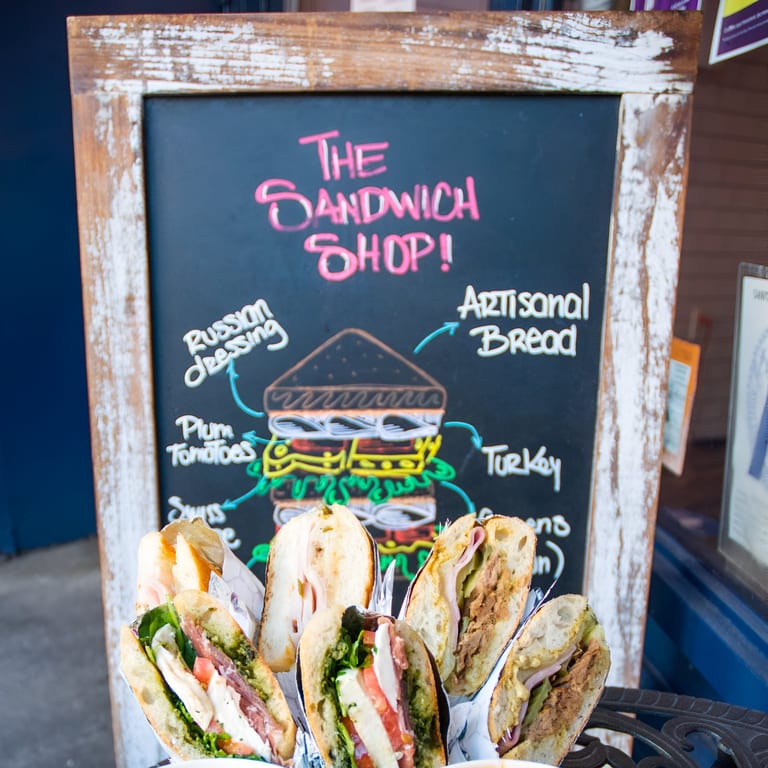 THE
SANDWICH
SHOP!
Russian
dressing
Artisanal
Bread
Plum
Tomatoes
Turkey
Swiss